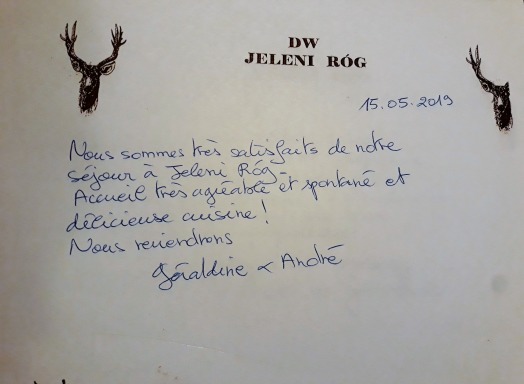 DW
JELENI RÓG
15.05.2019
Nous sommes très satisfaits de notre
séjour à Jeleni Róg.
Accueil très agréable et spontané et
délicieuse cuisine !
Nous reviendrons
Géraldine & André